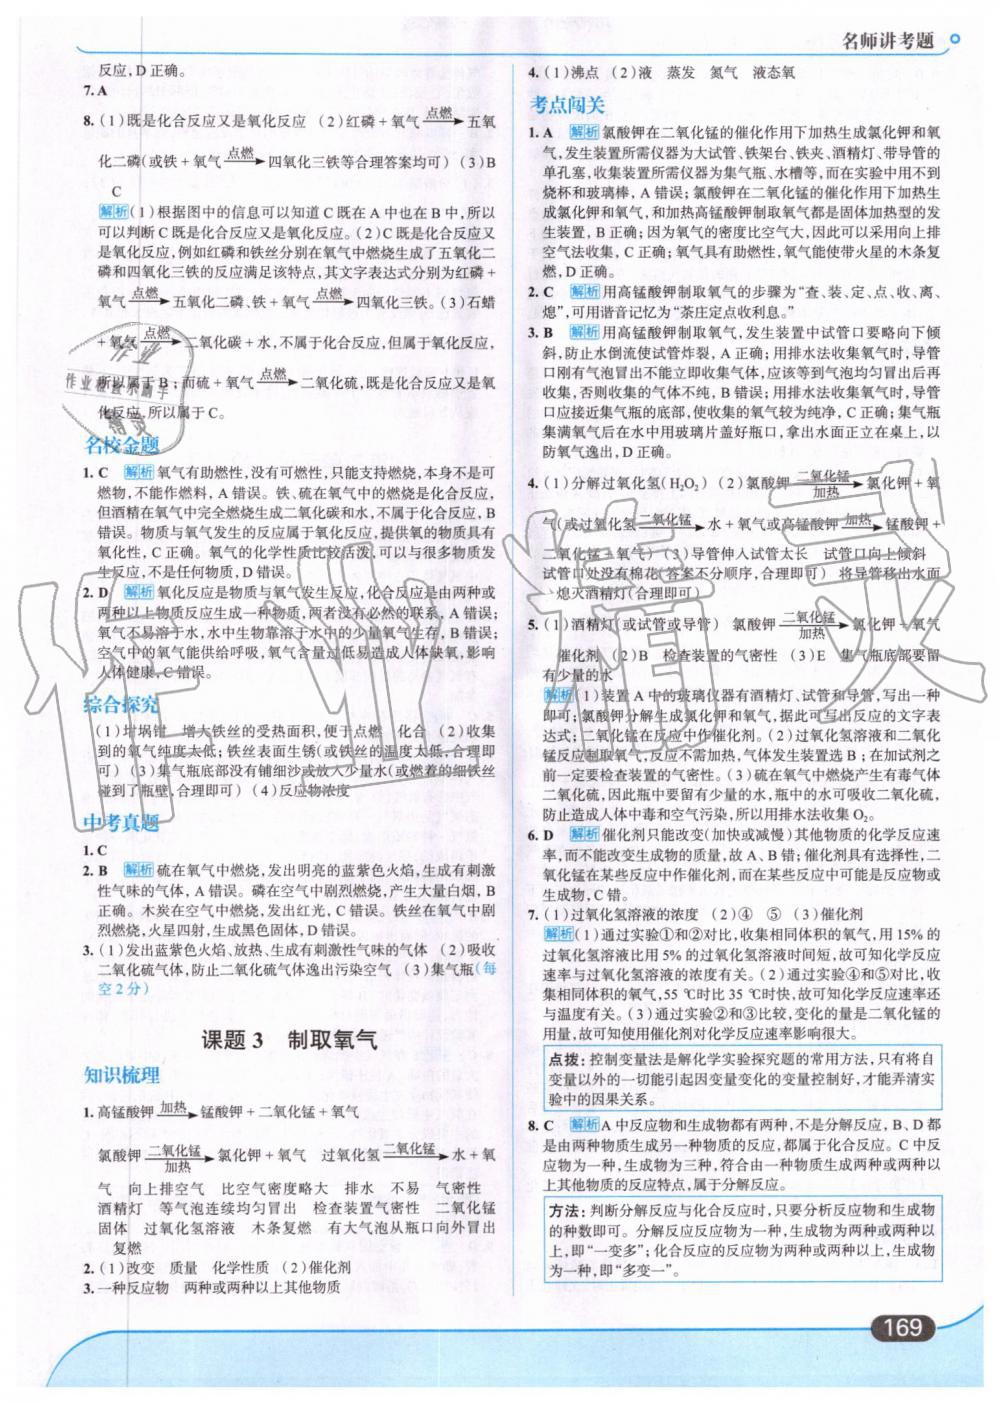 名师讲考题
反应,D正确。
7. A
8. (1)既是化合反应又是氧化反应 (2)红磷+氧气 点燃→ 五氧
化二磷(或铁+氧气 点燃→ 四氧化三铁等合理答案均可) (3)B
C
解析 (1)根据图中的信息可以知道C既在A中也在B中,所以
可以判断C既是化合反应又是氧化反应。(2)C既是化合反应又
是氧化反应,例如红磷和铁丝分别在氧气中燃烧生成了五氧化二
磷和四氧化三铁的反应满足该特点,其文字表达式分别为红磷+
氧气 点燃→ 五氧化二磷、铁+氧气 点燃→ 四氧化三铁。(3)石蜡
+氧气 点燃→ 二氧化碳+水,不属于化合反应,但属于氧化反应,
所以属于B;而硫+氧气 点燃→ 二氧化硫,既是化合反应又是氧
化反应,所以属于C。
名校金题
1. C 解析 氧气有助燃性,没有可燃性,只能支持燃烧,本身不是可
燃物,不能作燃料,A错误。铁、硫在氧气中的燃烧是化合反应,
但酒精在氧气中完全燃烧生成二氧化碳和水,不属于化合反应,B
错误。物质与氧气发生的反应属于氧化反应,提供氧的物质具有
氧化性,C正确。氧气的化学性质比较活泼,可以与很多物质发
生反应,不是任何物质,D错误。
2. D 解析 氧化反应是物质与氧气发生反应,化合反应是由两种或
两种以上物质反应生成一种物质,两者没有必然的联系,A错误;
氧气不易溶于水,水中生物靠溶于水中的少量氧气生存,B错误;
空气中的氧气能供给呼吸,氧气含量过低易造成人体缺氧,影响
人体健康,C错误。
综合探究
(1)坩埚钳 增大铁丝的受热面积,便于点燃 化合 (2)收集
到的氧气纯度太低;铁丝表面生锈(或铁丝的温度太低,合理即
可) (3)集气瓶底部没有铺细沙或放入少量水(或燃着的细铁丝
碰到了瓶壁,合理即可) (4)反应物浓度
中考真题
1. C
2. B 解析 硫在氧气中燃烧,发出明亮的蓝紫色火焰,生成有刺激
性气味的气体,A错误。磷在空气中剧烈燃烧,产生大量白烟,B
正确。木炭在空气中燃烧,发出红光,C错误。铁丝在氧气中剧
烈燃烧,火星四射,生成黑色固体,D错误。
3. (1)发出蓝紫色火焰、放热、生成有刺激性气味的气体 (2)吸收
二氧化硫气体,防止二氧化硫气体逸出污染空气 (3)集气瓶(每
空2分)
课题3 制取氧气
知识梳理
1. 高锰酸钾 加热→ 锰酸钾+二氧化锰+氧气
氯酸钾 二氧化锰/加热→ 氯化钾+氧气 过氧化氢 二氧化锰→ 水+氧
气 向上排空气 比空气密度略大 排水 不易 气密性
酒精灯 等气泡连续均匀冒出 检查装置气密性 二氧化锰
固体 过氧化氢溶液 木条复燃 有大气泡从瓶口向外冒出
复燃
2. (1)改变 质量 化学性质 (2)催化剂
3. 一种反应物 两种或两种以上其他物质
4. (1)沸点 (2)液 蒸发 氮气 液态氧
考点闯关
1. A 解析 氯酸钾在二氧化锰的催化作用下加热生成氯化钾和氧
气,发生装置所需仪器为大试管、铁架台、铁夹、酒精灯、带导管的
单孔塞,收集装置所需仪器为集气瓶、水槽等,而在实验中用不到
烧杯和玻璃棒,A错误;氯酸钾在二氧化锰的催化作用下加热生
成氯化钾和氧气,和加热高锰酸钾制取氧气都是固体加热型的发
生装置,B正确;因为氧气的密度比空气大,因此可以采用向上排
空气法收集,C正确;氧气具有助燃性,氧气能使带火星的木条复
燃,D正确。
2. C 解析 用高锰酸钾制取氧气的步骤为“查、装、定、点、收、离、
熄”,可用谐音记忆为“茶庄定点收利息。”
3. B 解析 用高锰酸钾制取氧气,发生装置中试管口要略向下倾
斜,防止水倒流使试管炸裂,A正确;用排水法收集氧气时,导管
口刚有气泡冒出不能立即收集气体,应该等到气泡均匀冒出后再
收集,否则收集的气体不纯,B错误;用排水法收集氧气时,导管
口应接近集气瓶的底部,使收集的氧气较为纯净,C正确;集气瓶
集满氧气后在水中用玻璃片盖好瓶口,拿出水面正立在桌上,以
防氧气逸出,D正确。
4. (1)分解过氧化氢(H₂O₂) (2)氯酸钾 二氧化锰/加热→ 氯化钾+氧
气(或过氧化氢 二氧化锰→ 水+氧气或高锰酸钾 加热→ 锰酸钾+
二氧化锰+氧气) (3)导管伸入试管太长 试管口向上倾斜
试管口处没有棉花(答案不分顺序,合理即可) 将导管移出水面
熄灭酒精灯(合理即可)
5. (1)酒精灯(或试管或导管) 氯酸钾 二氧化锰/加热→ 氯化钾+氧气
催化剂 (2)B 检查装置的气密性 (3)E 集气瓶底部要留
有少量的水
解析 (1)装置A中的玻璃仪器有酒精灯、试管和导管,写出一种
即可;氯酸钾分解生成氯化钾和氧气,据此可写出反应的文字表
达式;二氧化锰在反应中作催化剂。(2)过氧化氢溶液和二氧化
锰反应制取氧气,反应不需加热,气体发生装置选B;在加试剂之
前一定要检查装置的气密性。(3)硫在氧气中燃烧产生有毒气体
二氧化硫,因此瓶中要留有少量的水,瓶中的水可吸收二氧化硫,
防止造成人体中毒和空气污染,所以用排水法收集O₂。
6. D 解析 催化剂只能改变(加快或减慢)其他物质的化学反应速
率,而不能改变生成物的质量,故A、B错;催化剂具有选择性,二
氧化锰在某些反应中作催化剂,而在某些反应中可能是反应物或
生成物,C错。
7. (1)过氧化氢溶液的浓度 (2)④ ⑤ (3)催化剂
解析 (1)通过实验①和②对比,收集相同体积的氧气,用15%的
过氧化氢溶液比用5%的过氧化氢溶液时间短,故可知化学反应
速率与过氧化氢溶液的浓度有关。(2)通过实验④和⑤对比,收
集相同体积的氧气,55 ℃时比35 ℃时快,故可知化学反应速率还
与温度有关。(3)通过实验②和③比较,变化的量是二氧化锰的
用量,故可知使用催化剂对化学反应速率影响很大。
点拨:控制变量法是解化学实验探究题的常用方法,只有将自
变量以外的一切能引起因变量变化的变量控制好,才能弄清实
验中的因果关系。
8. C 解析 A中反应物和生成物都有两种,不是分解反应,B、D都
是由两种物质生成另一种物质的反应,都属于化合反应。C中反
应物为一种,生成物为三种,符合由一种物质生成两种或两种以
上其他物质的反应特点,属于分解反应。
方法:判断分解反应与化合反应时,只要分析反应物和生成物
的种数即可。分解反应反应物为一种,生成物为两种或两种以
上,即“一变多”;化合反应的反应物为两种或两种以上,生成物
为一种,即“多变一”。
169
作业
作业检查小助手
精灵
作业精灵